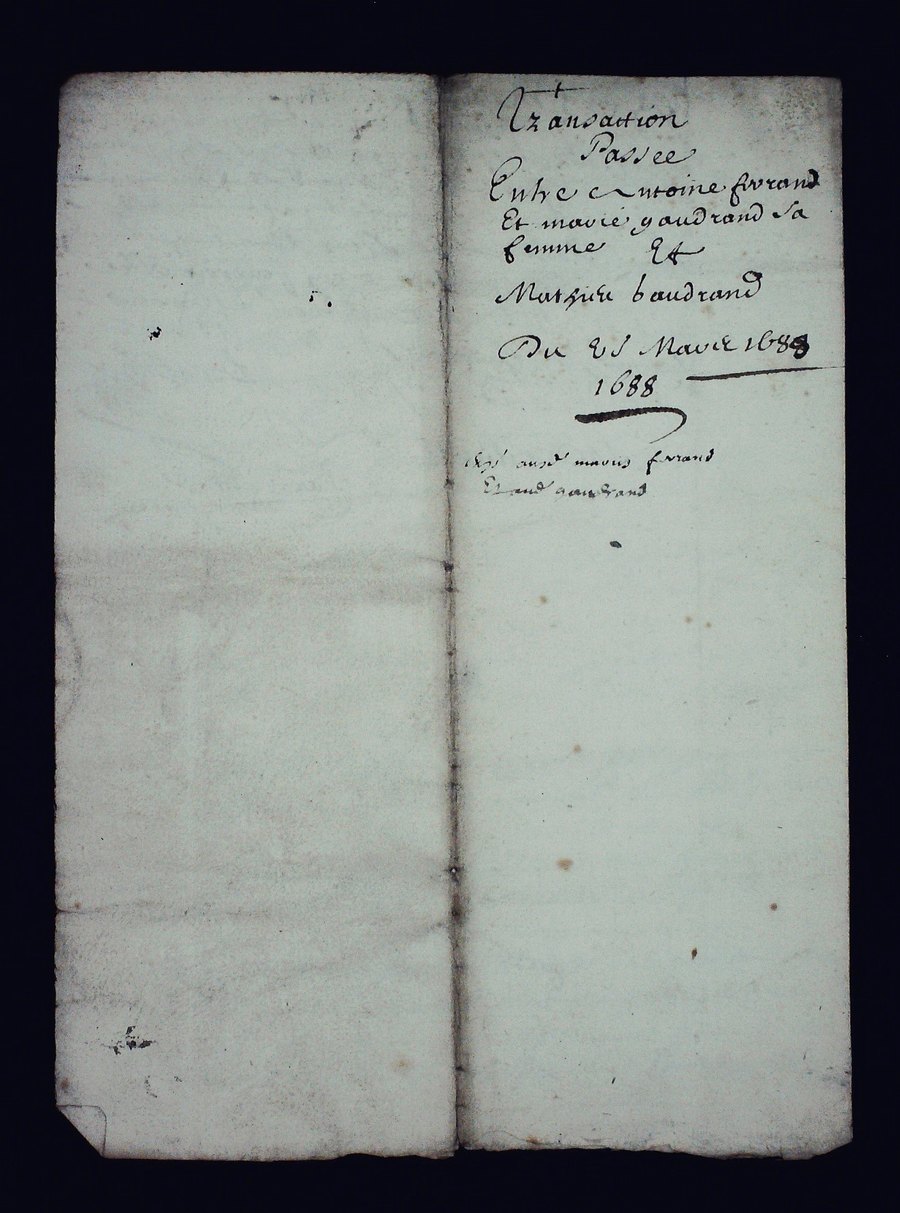 Transaction
Passee
Entre Antoine ferrand
Et marie gaudrand sa
femme Et
Mathieu baudrand
Du Mars 1688
1688
ferrand
gaudrand